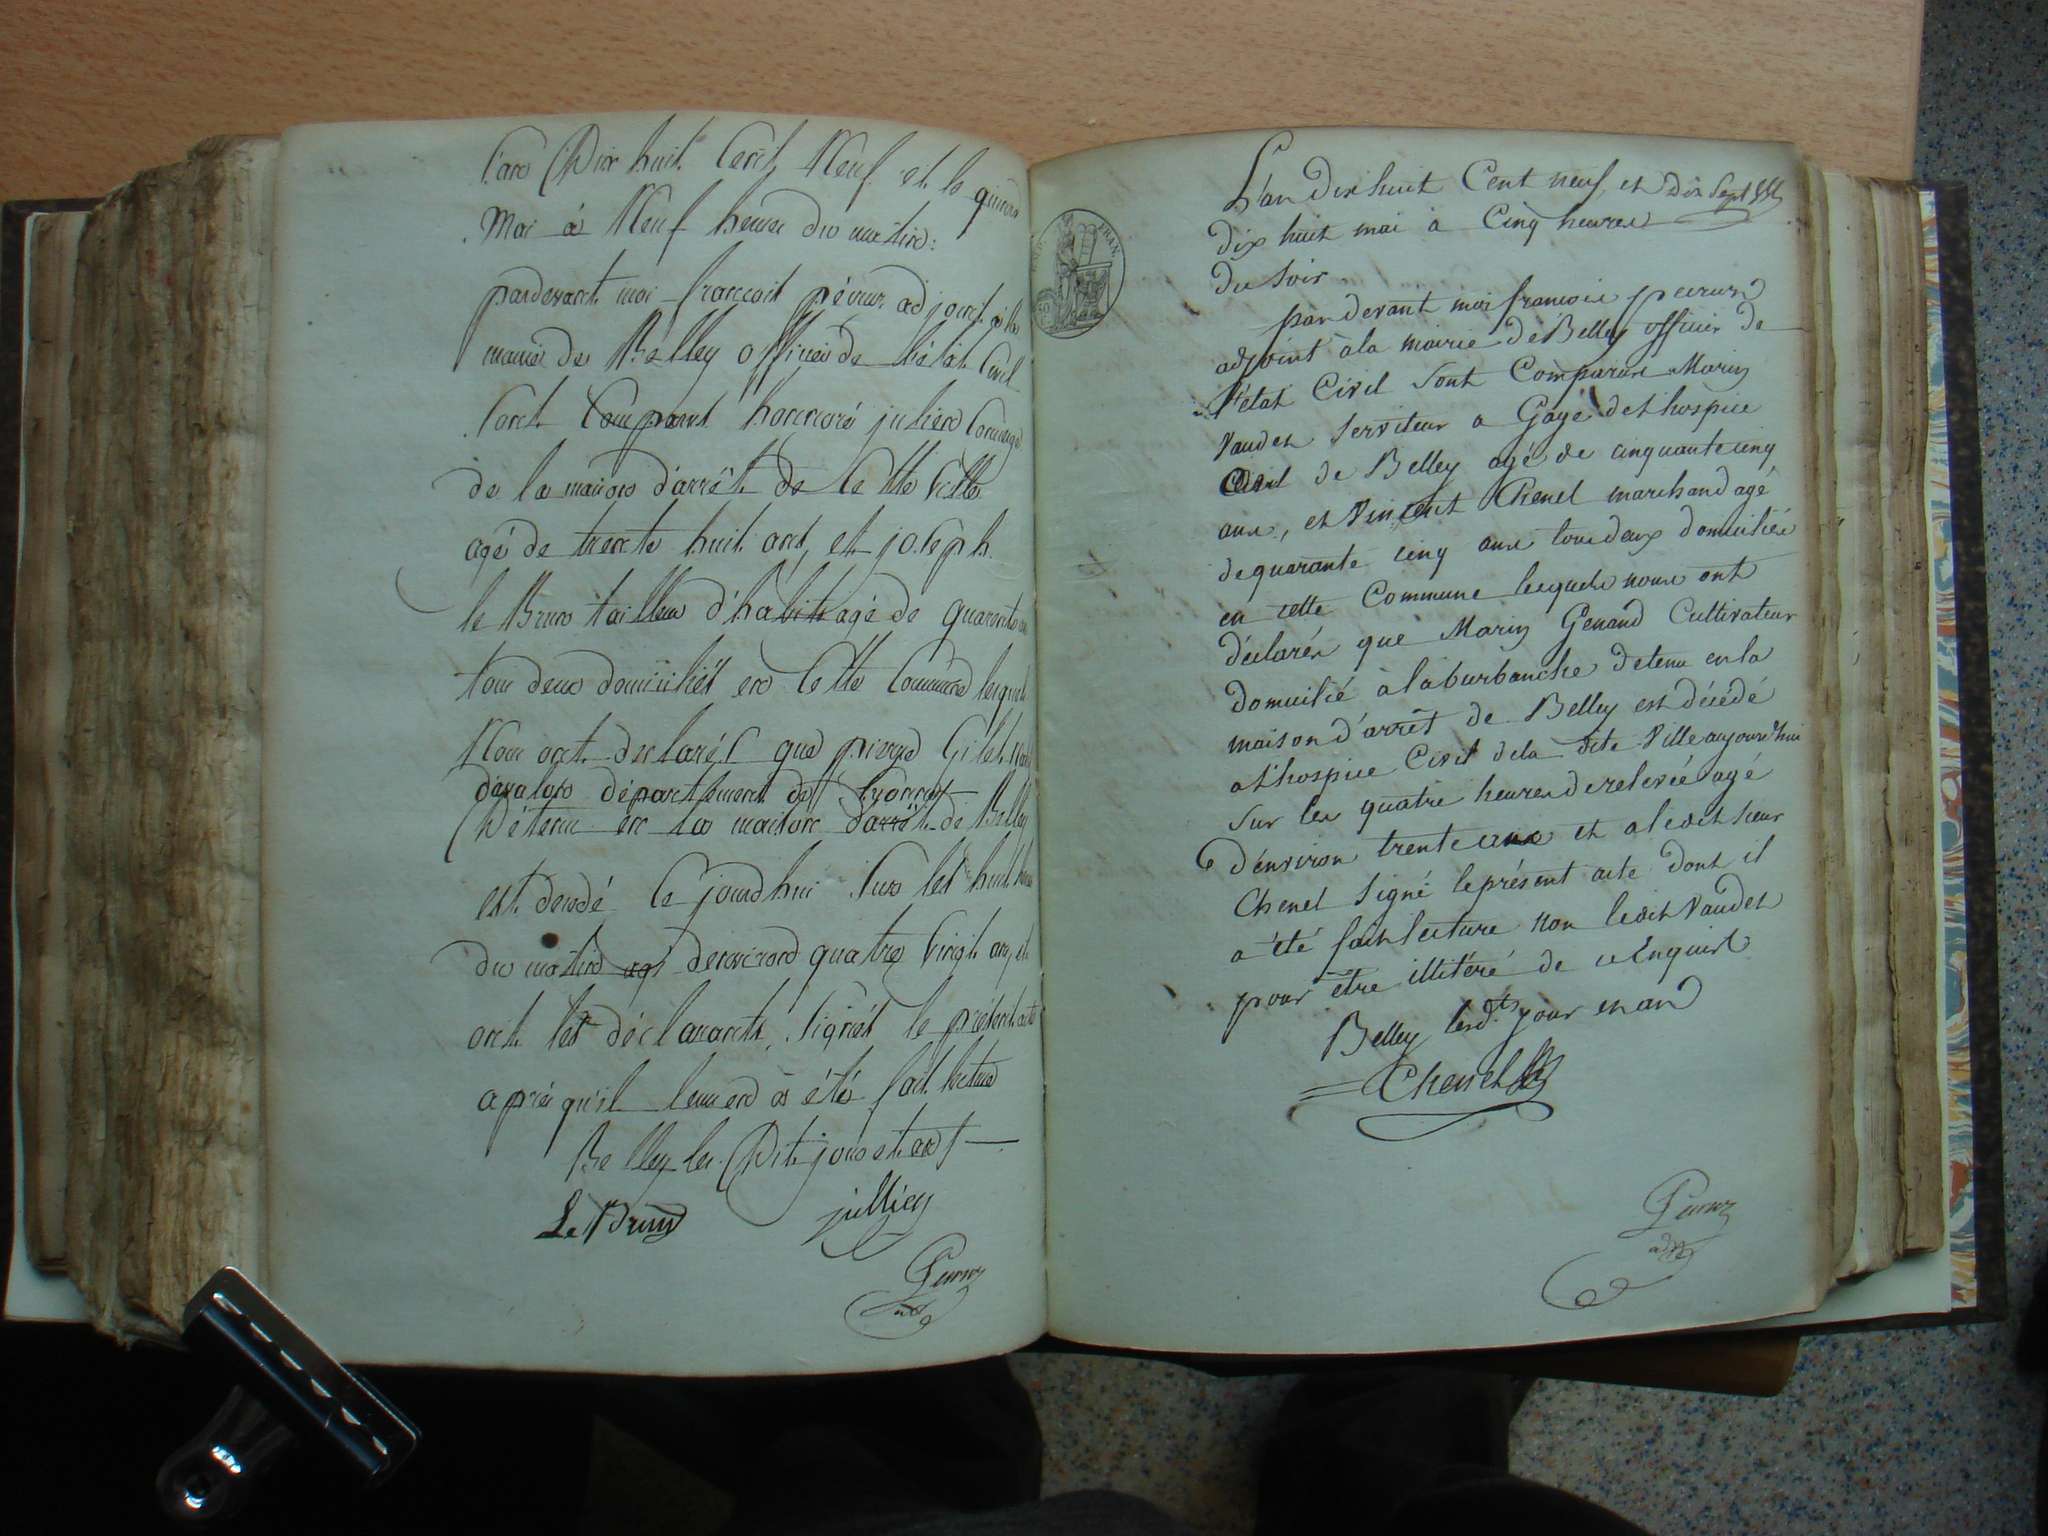 L'an Dix huit Cent Neuf et le quinze
Mai à Neuf heures du matin
pardevant moi françois péüruz adjoint à la
mairie de Belley officier de l'état Civil
sont Comparus honnoré julien Concierge
de la maison d'arrêt de Cette Ville
agé de trente huit ans, et joseph
le Brun tailleur d'habits agé de quarente ans
tous deux domiciliés en Cette Commune lesquels
Nous ont declarés que pierre Gilet
département de
Détenu en la maison d'arrêt de Belley
est décédé Ce jourd'hui sur les huit heures
du matin agé d'environ quatre Vingt ans, et
ont les déclarants signés le présent acte
après qu'il leur en a été fait lecture
Belley les Dit jour et an
Le Brun jullien
Peuruz
adjt
FRAN.
L'an Dix huit Cent neuf, et Dix Sept
dix huit mai à Cinq heures
du soir
par devant moi françois peuruz
adjoint à la mairie de Belley officier de
l'état Civil sont Comparus Marin
Vaudet serviteur a Gage de l'hospice
Civil de Belley agé de cinquante cinq
ans, et Vincent Chenel marchand agé
de quarante cinq ans tous deux domiciliés
en cette Commune lesquels nous ont
déclarés que Marin Genand Cultivateur
domicilié à laburbanche detenu en la
maison d'arrêt de Belley est décédé
a l'hospice Civil de la dite Ville aujourd'hui
sur les quatre heures de relevée agé
d'environ trente ans et a ledit sieur
Chenel signé le présent acte dont il
a été fait lecture non ledit Vaudet
pour être illitéré de ce Enquist
Belley lesdts jour et an
Chenel
Peuruz
adjt